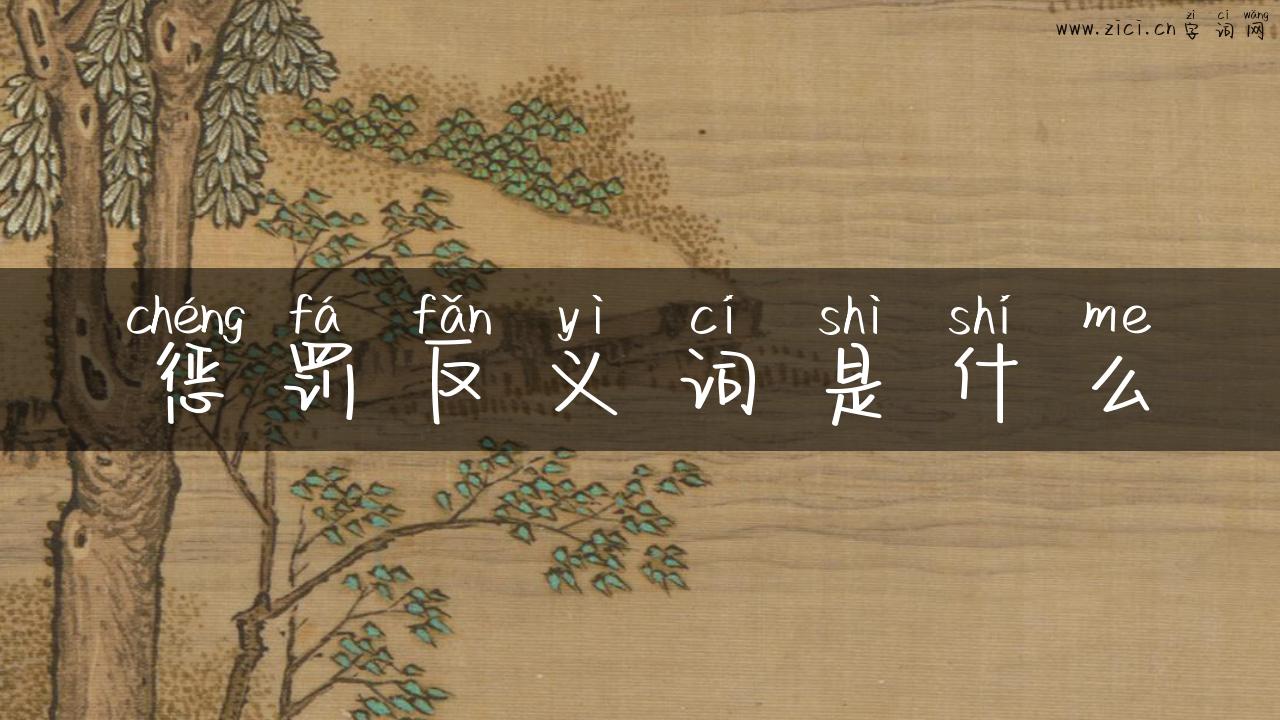 zì cí wǎng
www.zici.cn 字词网
chéng fá fǎn yì cí shì shí me
惩罚反义词是什么